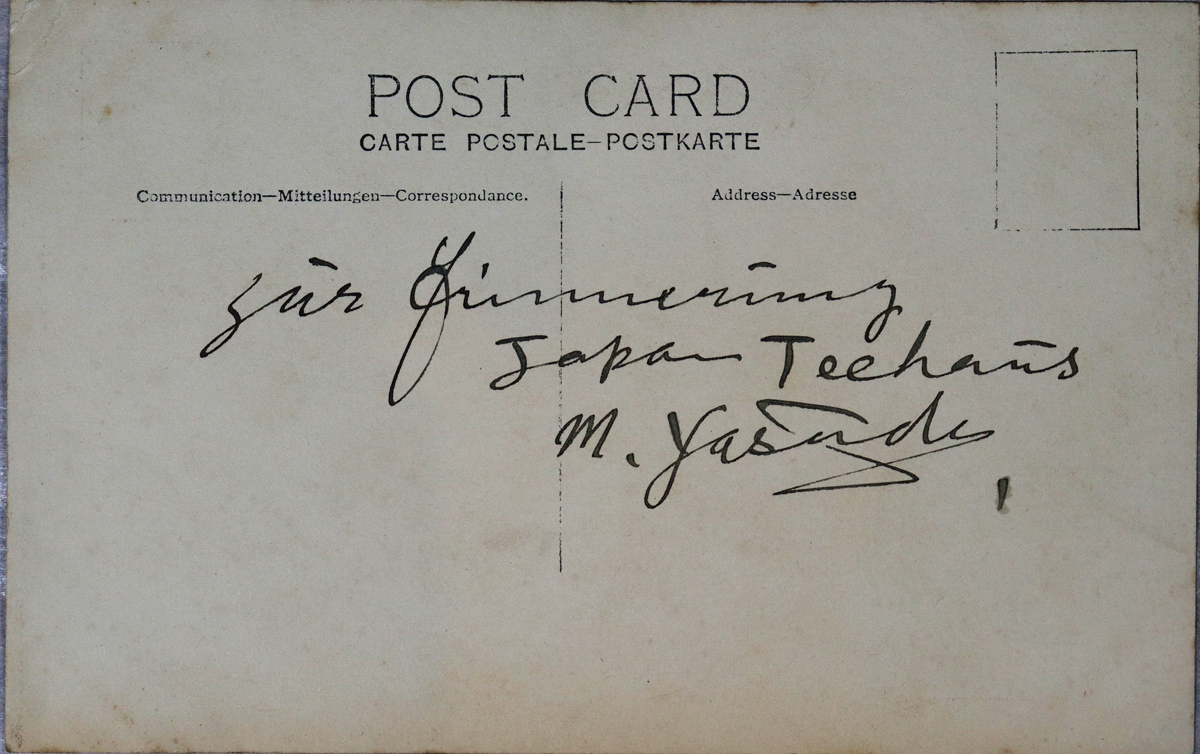 POST CARD
CARTE POSTALE-POSTKARTE
Communication—Mitteilungen—Correspondance.
Address—Adresse
zur Erinnerung
Japan Teehaus
M. Yasuda